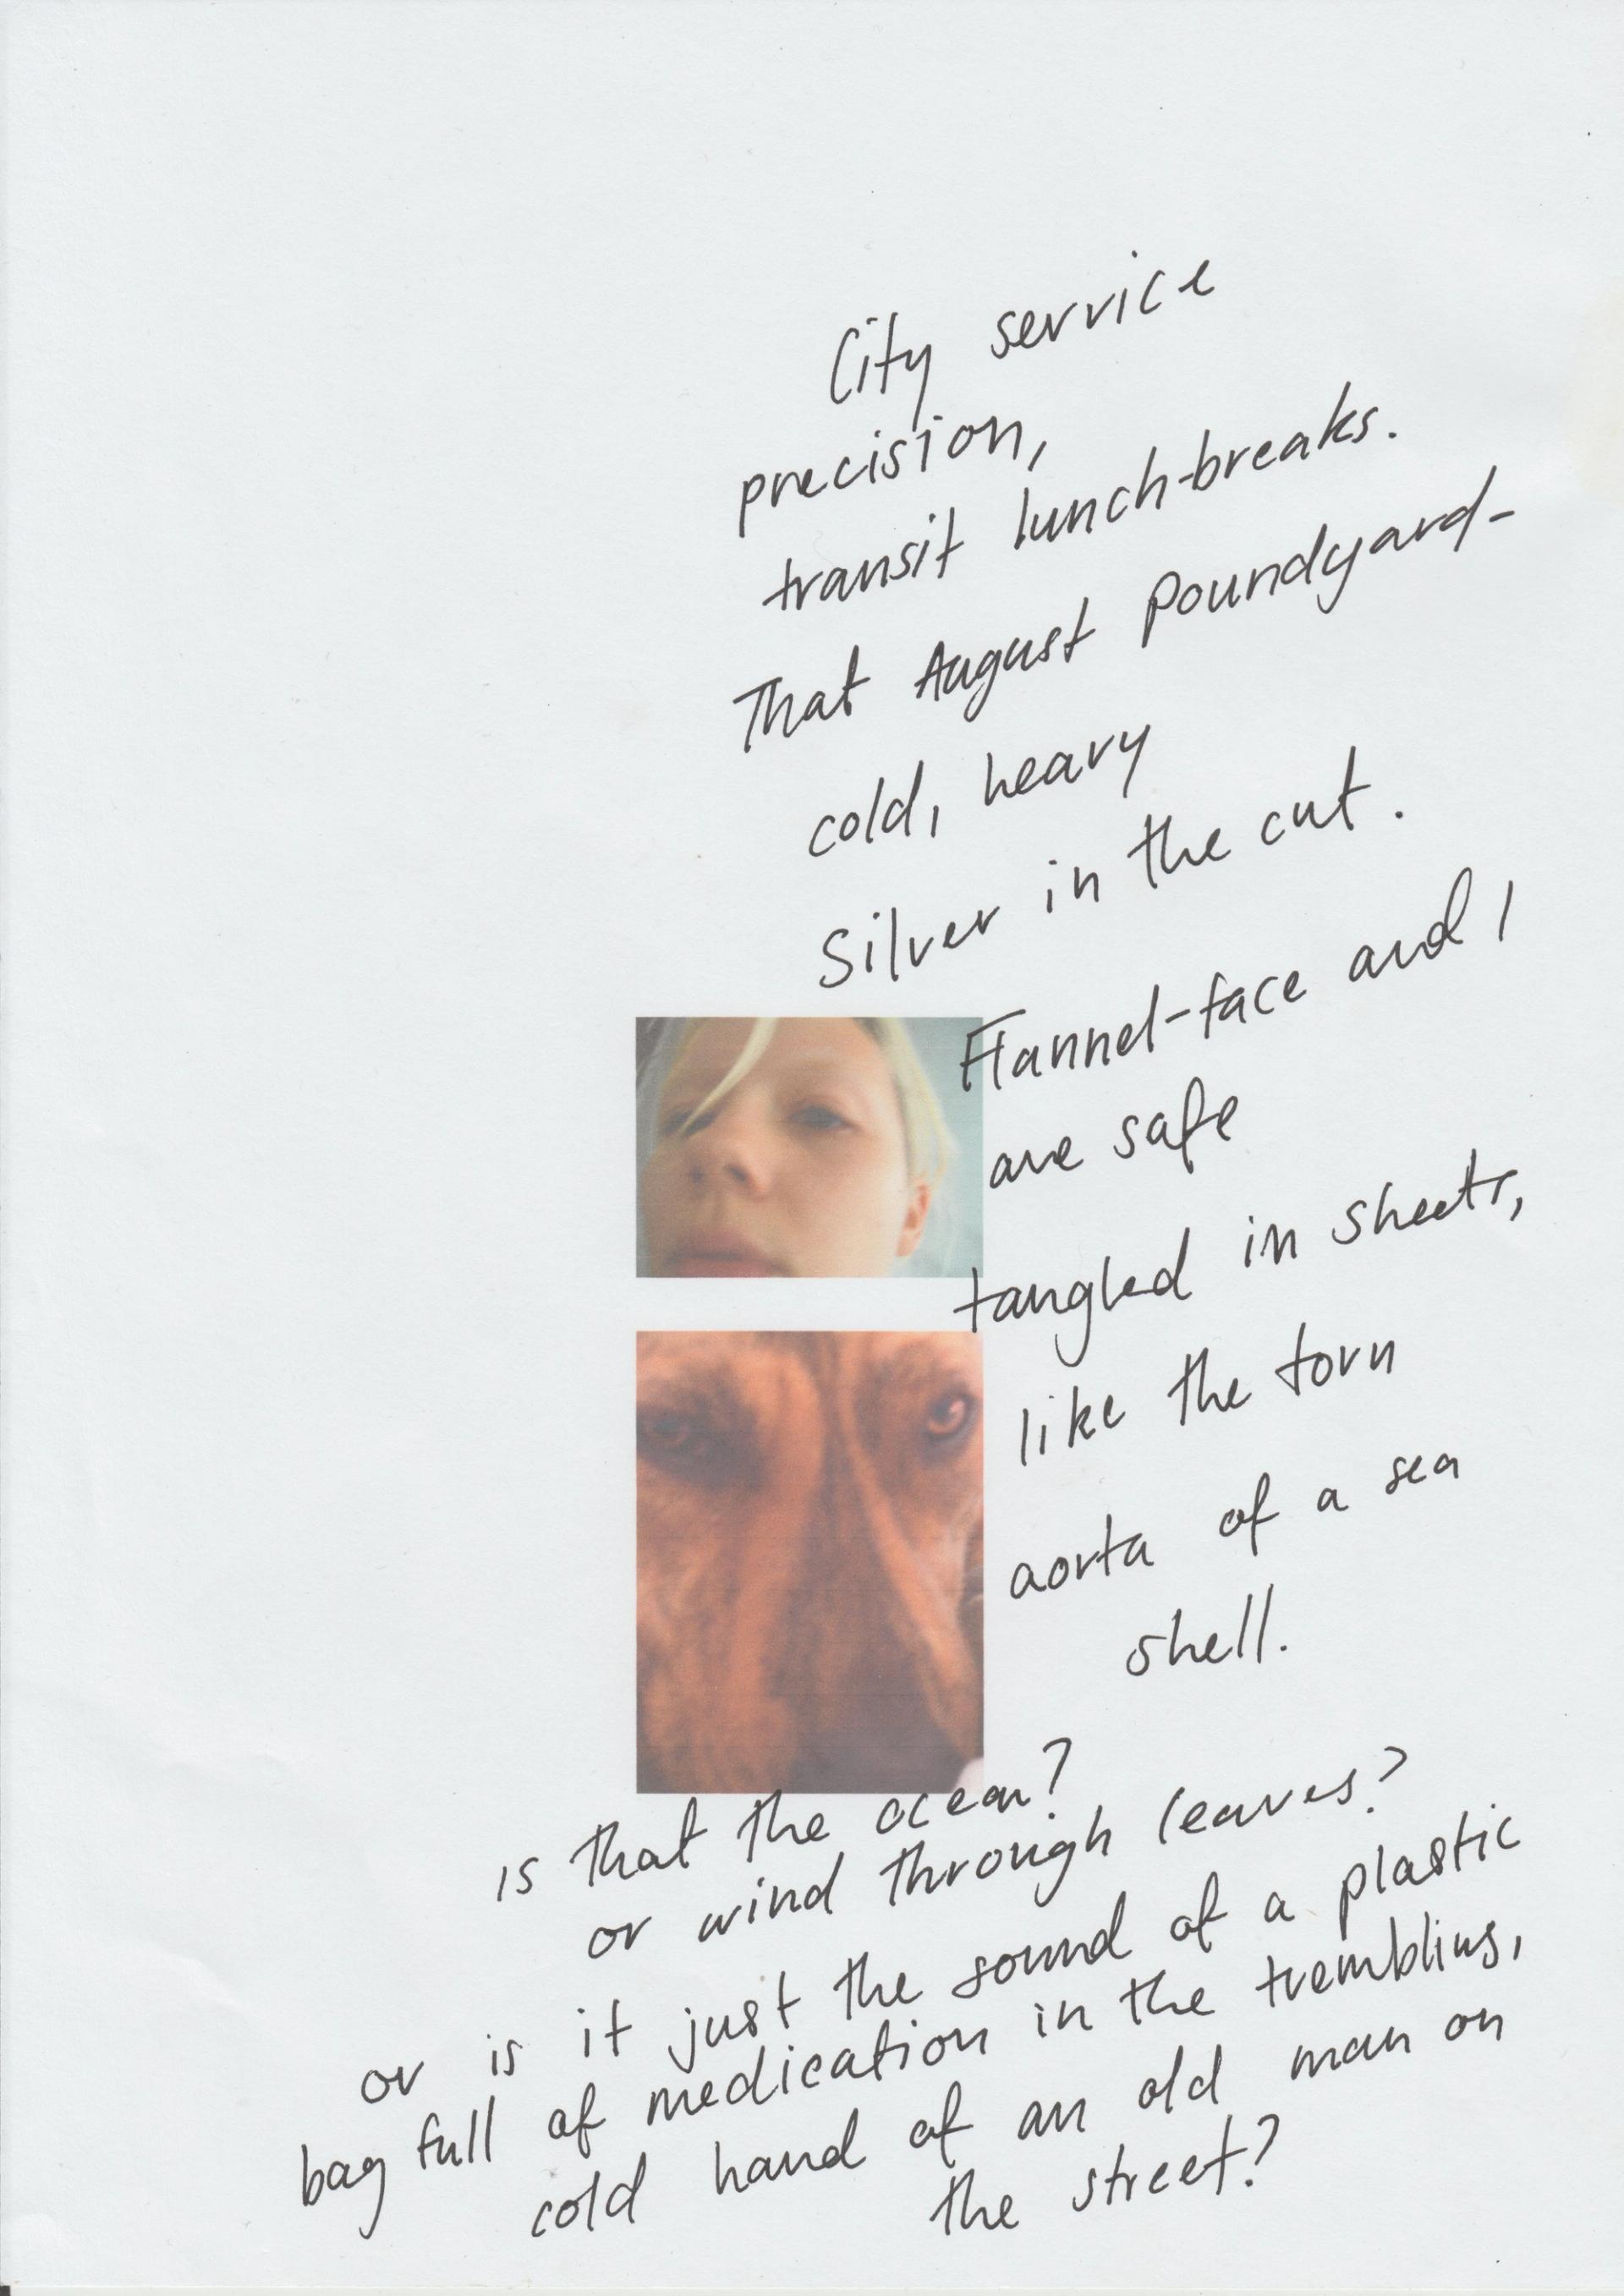 City service
precision,
transit lunch-breaks.
That August poundyard-
cold, heavy
Silver in the cut.
Flannel-face and I
are safe
tangled in sheets,
like the torn
aorta of a sea
shell.
is that the ocean?
or wind through leaves?
or is it just the sound of a plastic
bag full of medication in the trembling,
cold hand of an old man on
the street?